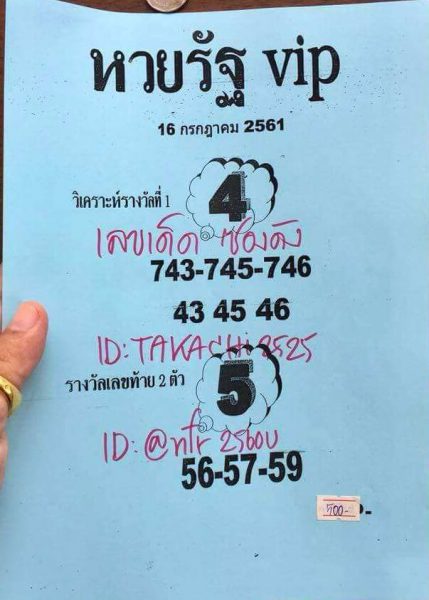 หวยรัฐ vip
16 กรกฎาคม 2561
วิเคราะห์รางวัลที่ 1 4
เลขเด็ด ซองดัง
743-745-746
43 45 46
ID: TAKACHi 2525
รางวัลเลขท้าย 2 ตัว 5
ID: @nfr 2560U
56-57-59
500-